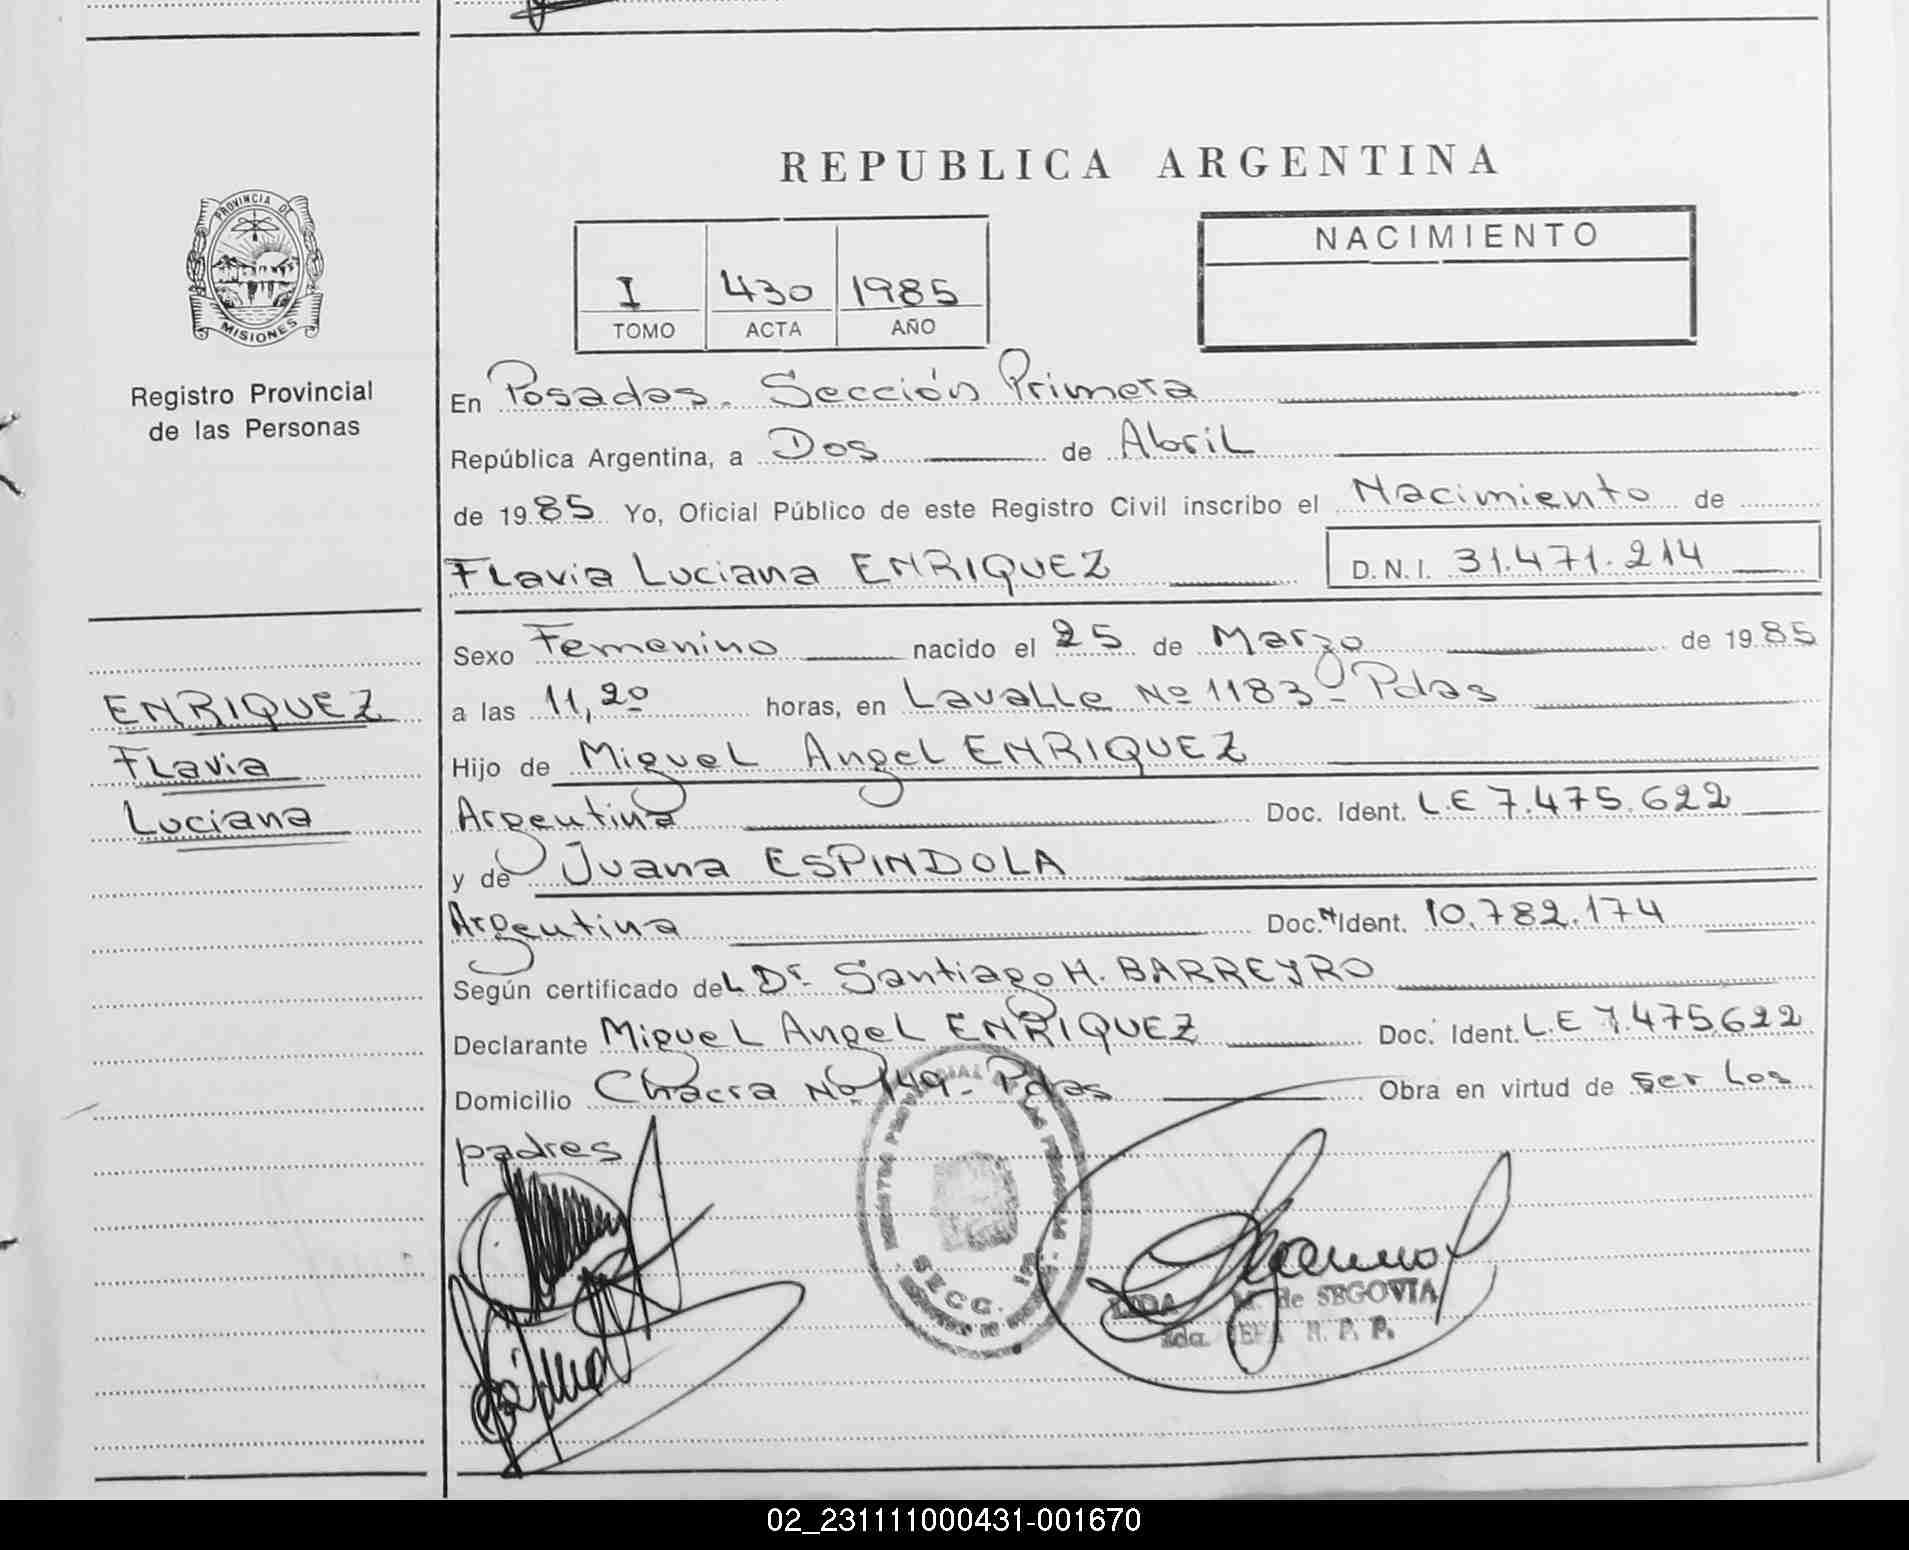 REPUBLICA ARGENTINA
PROVINCIA DE
MISIONES
Registro Provincial
de las Personas
I 430 1985
TOMO ACTA AÑO
NACIMIENTO
En Posadas. Sección Primera
República Argentina, a Dos de Abril
de 1985 Yo, Oficial Público de este Registro Civil inscribo el Nacimiento de
Flavia Luciana ENRIQUEZ D.N.I. 31.471.214
Sexo Femenino nacido el 25 de Marzo de 1985
a las 11,20 horas, en Lavalle Nº 1183 - Pdas
Hijo de Miguel Angel ENRIQUEZ
Argentina Doc. Ident. L.E 7.475.622
y de Juana ESPINDOLA
Argentina Doc. Ident. 10.782.174
Según certificado del Dr. Santiago H. BARREYRO
Declarante Miguel Angel ENRIQUEZ Doc. Ident. L.E 7.475.622
Domicilio Chacra Nº 149 - Pdas Obra en virtud de ser los
padres
ENRIQUEZ
Flavia
Luciana
SECC. 1ra
M. de SEGOVIA
2da. JEFA R. P. P.
02_231111000431-001670